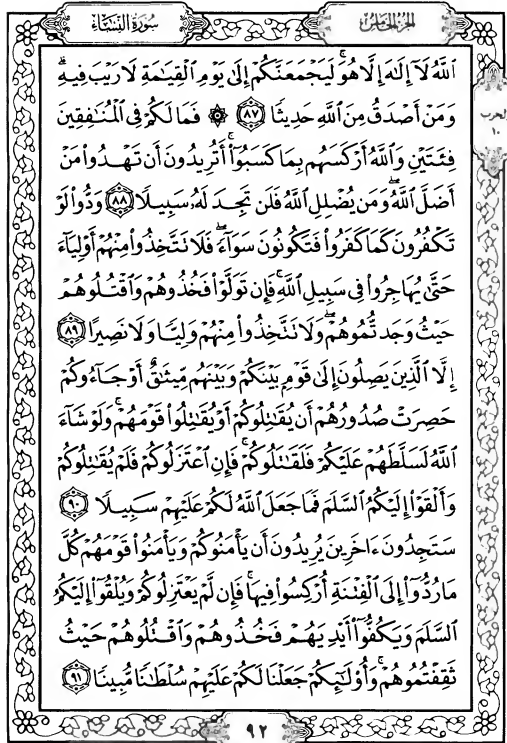 سُورَةُ النِّسَاءِ
الجُزْءُ الخَامِسُ
ٱللَّهُ لَآ إِلَٰهَ إِلَّا هُوَۚ لَيَجْمَعَنَّكُمْ إِلَىٰ يَوْمِ ٱلْقِيَٰمَةِ لَا رَيْبَ فِيهِۗ
وَمَنْ أَصْدَقُ مِنَ ٱللَّهِ حَدِيثًا ٨٧ ۞ فَمَا لَكُمْ فِى ٱلْمُنَٰفِقِينَ
فِئَتَيْنِ وَٱللَّهُ أَرْكَسَهُم بِمَا كَسَبُوٓا۟ۚ أَتُرِيدُونَ أَن تَهْدُوا۟ مَنْ
أَضَلَّ ٱللَّهُۖ وَمَن يُضْلِلِ ٱللَّهُ فَلَن تَجِدَ لَهُۥ سَبِيلًا ٨٨ وَدُّوا۟ لَوْ
تَكْفُرُونَ كَمَا كَفَرُوا۟ فَتَكُونُونَ سَوَآءًۖ فَلَا تَتَّخِذُوا۟ مِنْهُمْ أَوْلِيَآءَ
حَتَّىٰ يُهَاجِرُوا۟ فِى سَبِيلِ ٱللَّهِۚ فَإِن تَوَلَّوْا۟ فَخُذُوهُمْ وَٱقْتُلُوهُمْ
حَيْثُ وَجَدتُّمُوهُمْۖ وَلَا تَتَّخِذُوا۟ مِنْهُمْ وَلِيًّا وَلَا نَصِيرًا ٨٩
إِلَّا ٱلَّذِينَ يَصِلُونَ إِلَىٰ قَوْمٍۭ بَيْنَكُمْ وَبَيْنَهُم مِّيثَٰقٌ أَوْ جَآءُوكُمْ
حَصِرَتْ صُدُورُهُمْ أَن يُقَٰتِلُوكُمْ أَوْ يُقَٰتِلُوا۟ قَوْمَهُمْۚ وَلَوْ شَآءَ
ٱللَّهُ لَسَلَّطَهُمْ عَلَيْكُمْ فَلَقَٰتَلُوكُمْۚ فَإِنِ ٱعْتَزَلُوكُمْ فَلَمْ يُقَٰتِلُوكُمْ
وَأَلْقَوْا۟ إِلَيْكُمُ ٱلسَّلَمَ فَمَا جَعَلَ ٱللَّهُ لَكُمْ عَلَيْهِمْ سَبِيلًا ٩٠
سَتَجِدُونَ ءَاخَرِينَ يُرِيدُونَ أَن يَأْمَنُوكُمْ وَيَأْمَنُوا۟ قَوْمَهُمْ كُلَّ
مَا رُدُّوٓا۟ إِلَى ٱلْفِتْنَةِ أُرْكِسُوا۟ فِيهَاۚ فَإِن لَّمْ يَعْتَزِلُوكُمْ وَيُلْقُوٓا۟ إِلَيْكُمُ
ٱلسَّلَمَ وَيَكُفُّوٓا۟ أَيْدِيَهُمْ فَخُذُوهُمْ وَٱقْتُلُوهُمْ حَيْثُ
ثَقِفْتُمُوهُمْۚ وَأُو۟لَٰٓئِكُمْ جَعَلْنَا لَكُمْ عَلَيْهِمْ سُلْطَٰنًا مُّبِينًا ٩١
٩٢
الحزب
١٠